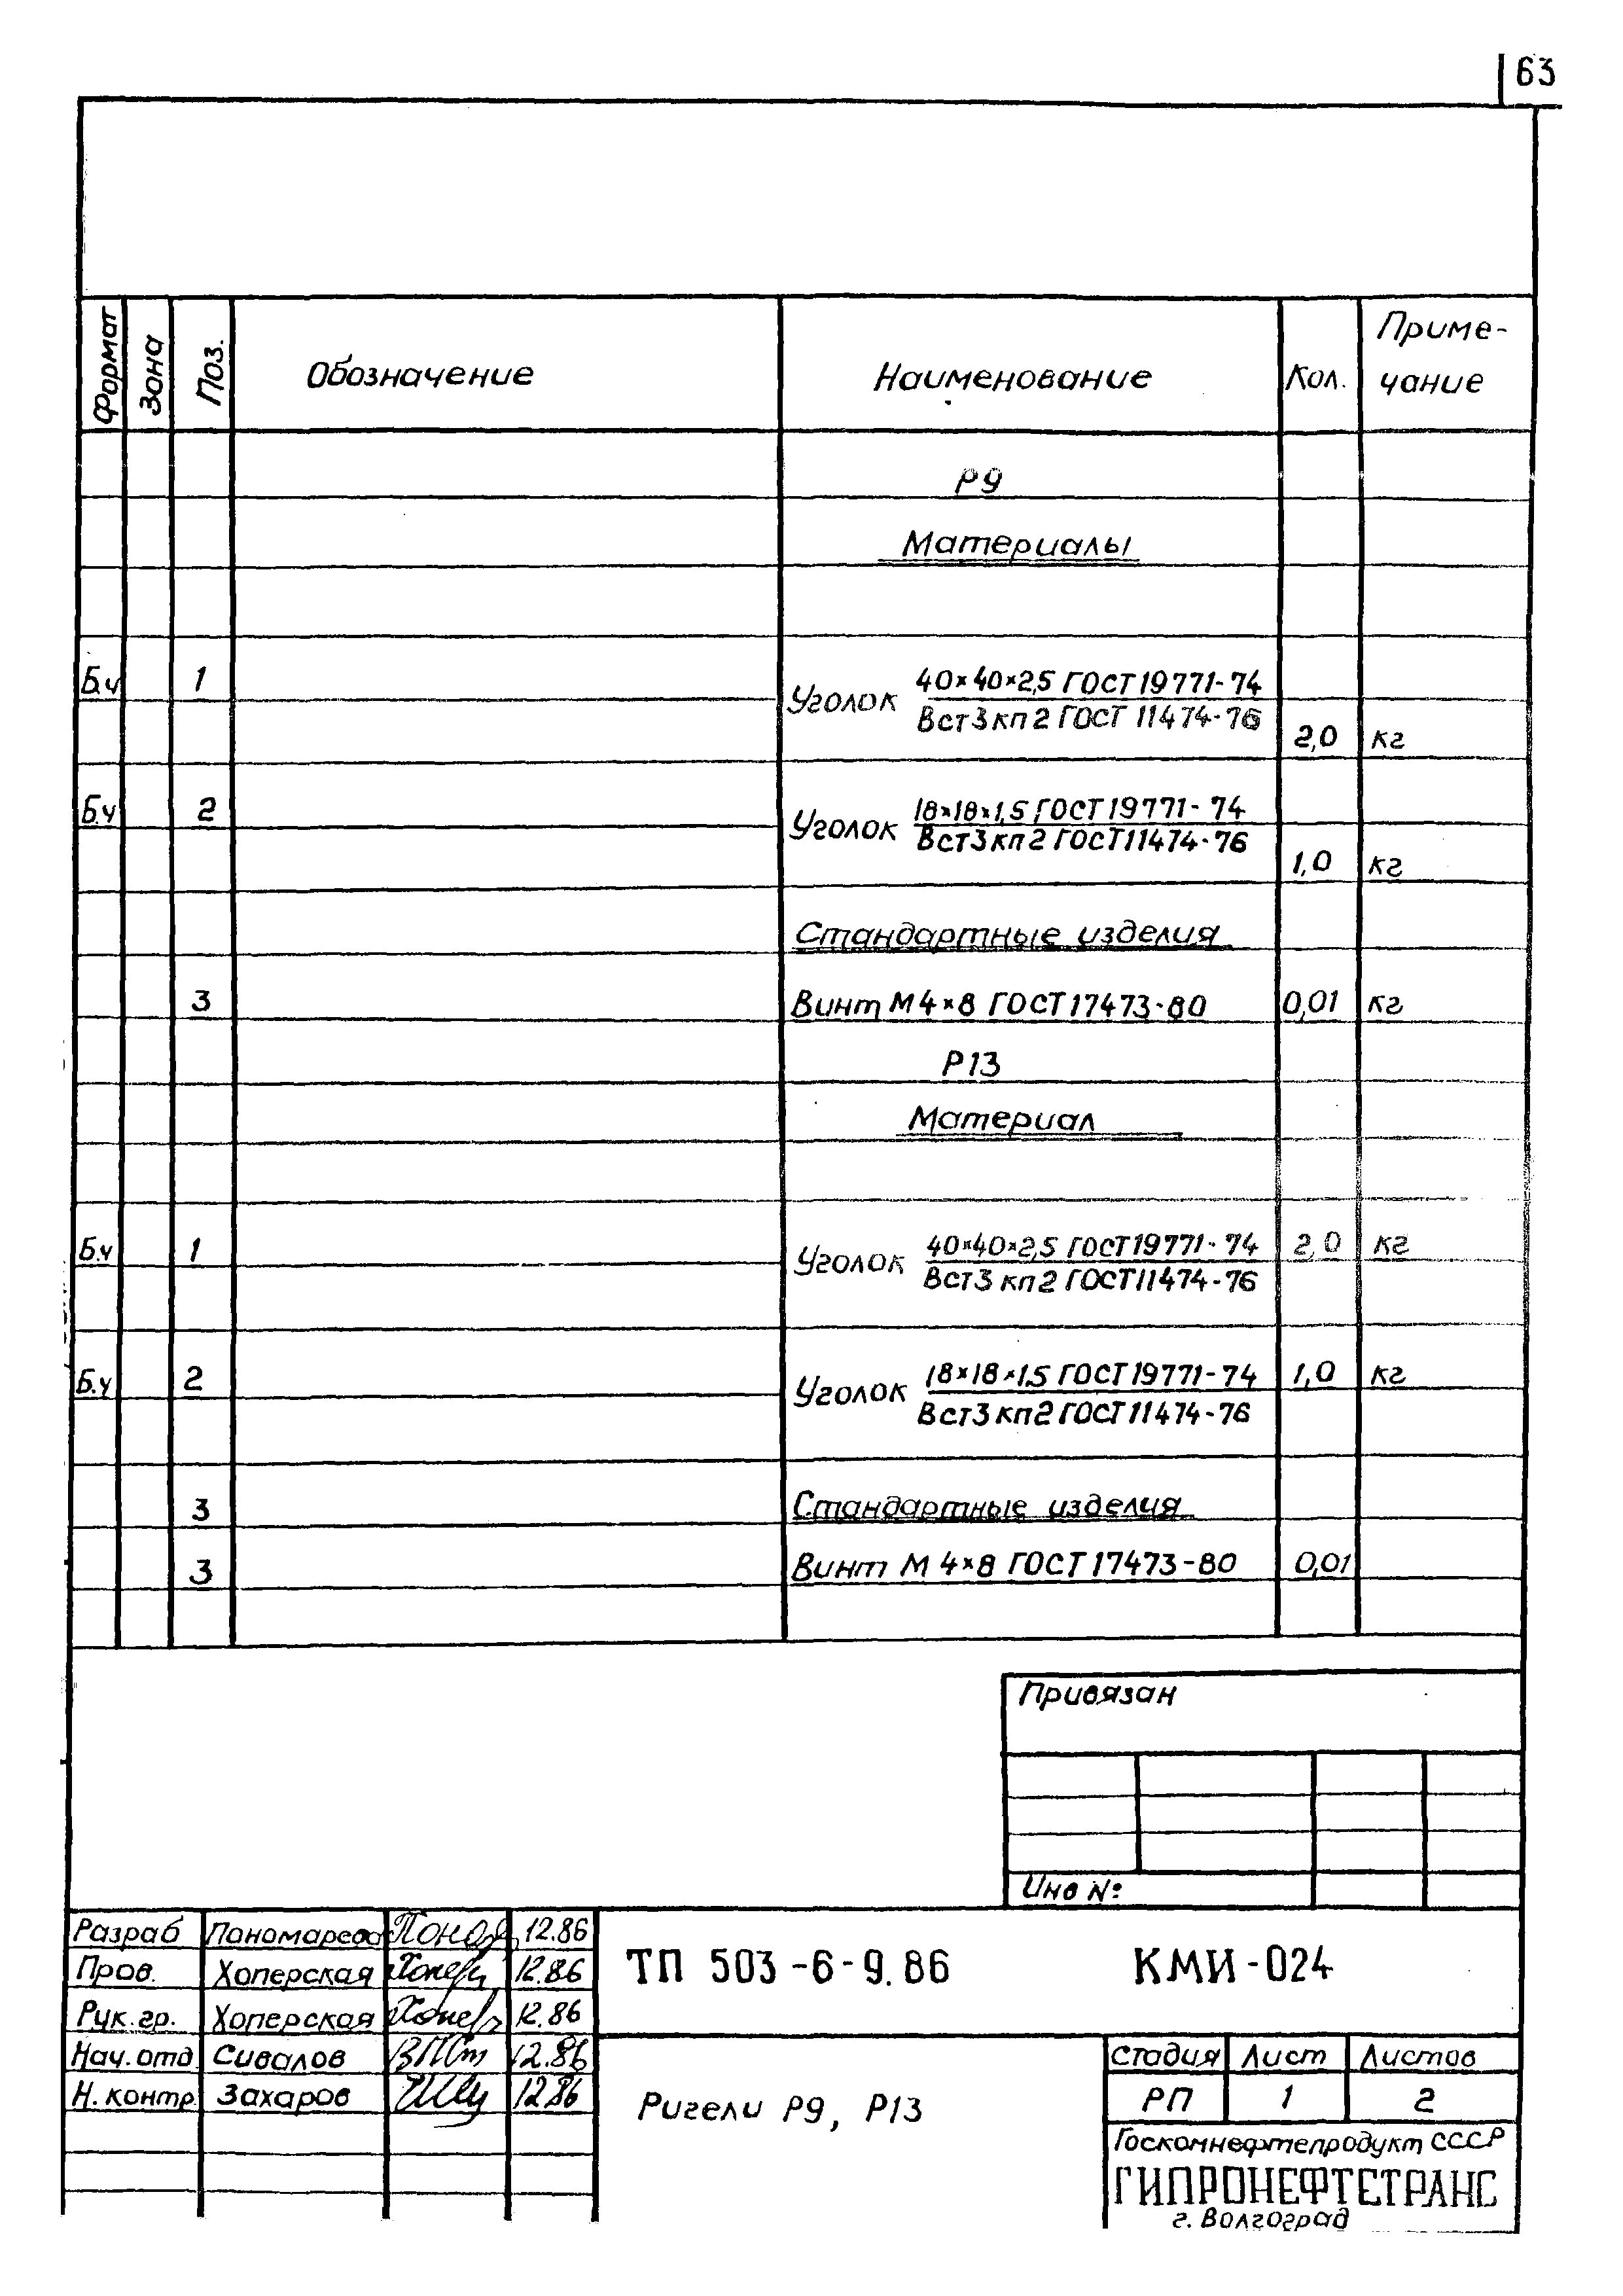 63
Формат Зона Поз. Обозначение Наименование Кол. Приме-
чание
Р9
Материалы
Б.ч 1 Уголок 40×40×2,5 ГОСТ 19771-74
Вст3кп2 ГОСТ 11474-76
2,0 кг
Б.ч 2 Уголок 18×18×1,5 ГОСТ 19771-74
Вст3кп2 ГОСТ 11474-76
1,0 кг
Стандартные изделия
3 Винт М4×8 ГОСТ 17473-80 0,01 кг
Р13
Материал
Б.ч 1 Уголок 40×40×2,5 ГОСТ 19771-74 2,0 кг
Вст3 кп2 ГОСТ 11474-76
Б.ч 2 Уголок 18×18×1,5 ГОСТ 19771-74 1,0 кг
Вст3кп2 ГОСТ 11474-76
3 Стандартные изделия
3 Винт М 4×8 ГОСТ 17473-80 0,01
Привязан
Инв №
Разраб Пономарева 12.86
Пров. Хоперская 12.86
Рук. гр. Хоперская 12.86
Нач. отд. Сивалов 12.86
Н. контр. Захаров 12.86
ТП 503-6-9.86 КМИ-024
Ригели Р9, Р13
Стадия Лист Листов
РП 1 2
Госкомнефтепродукт СССР
ГИПРОНЕФТЕТРАНС
г. Волгоград